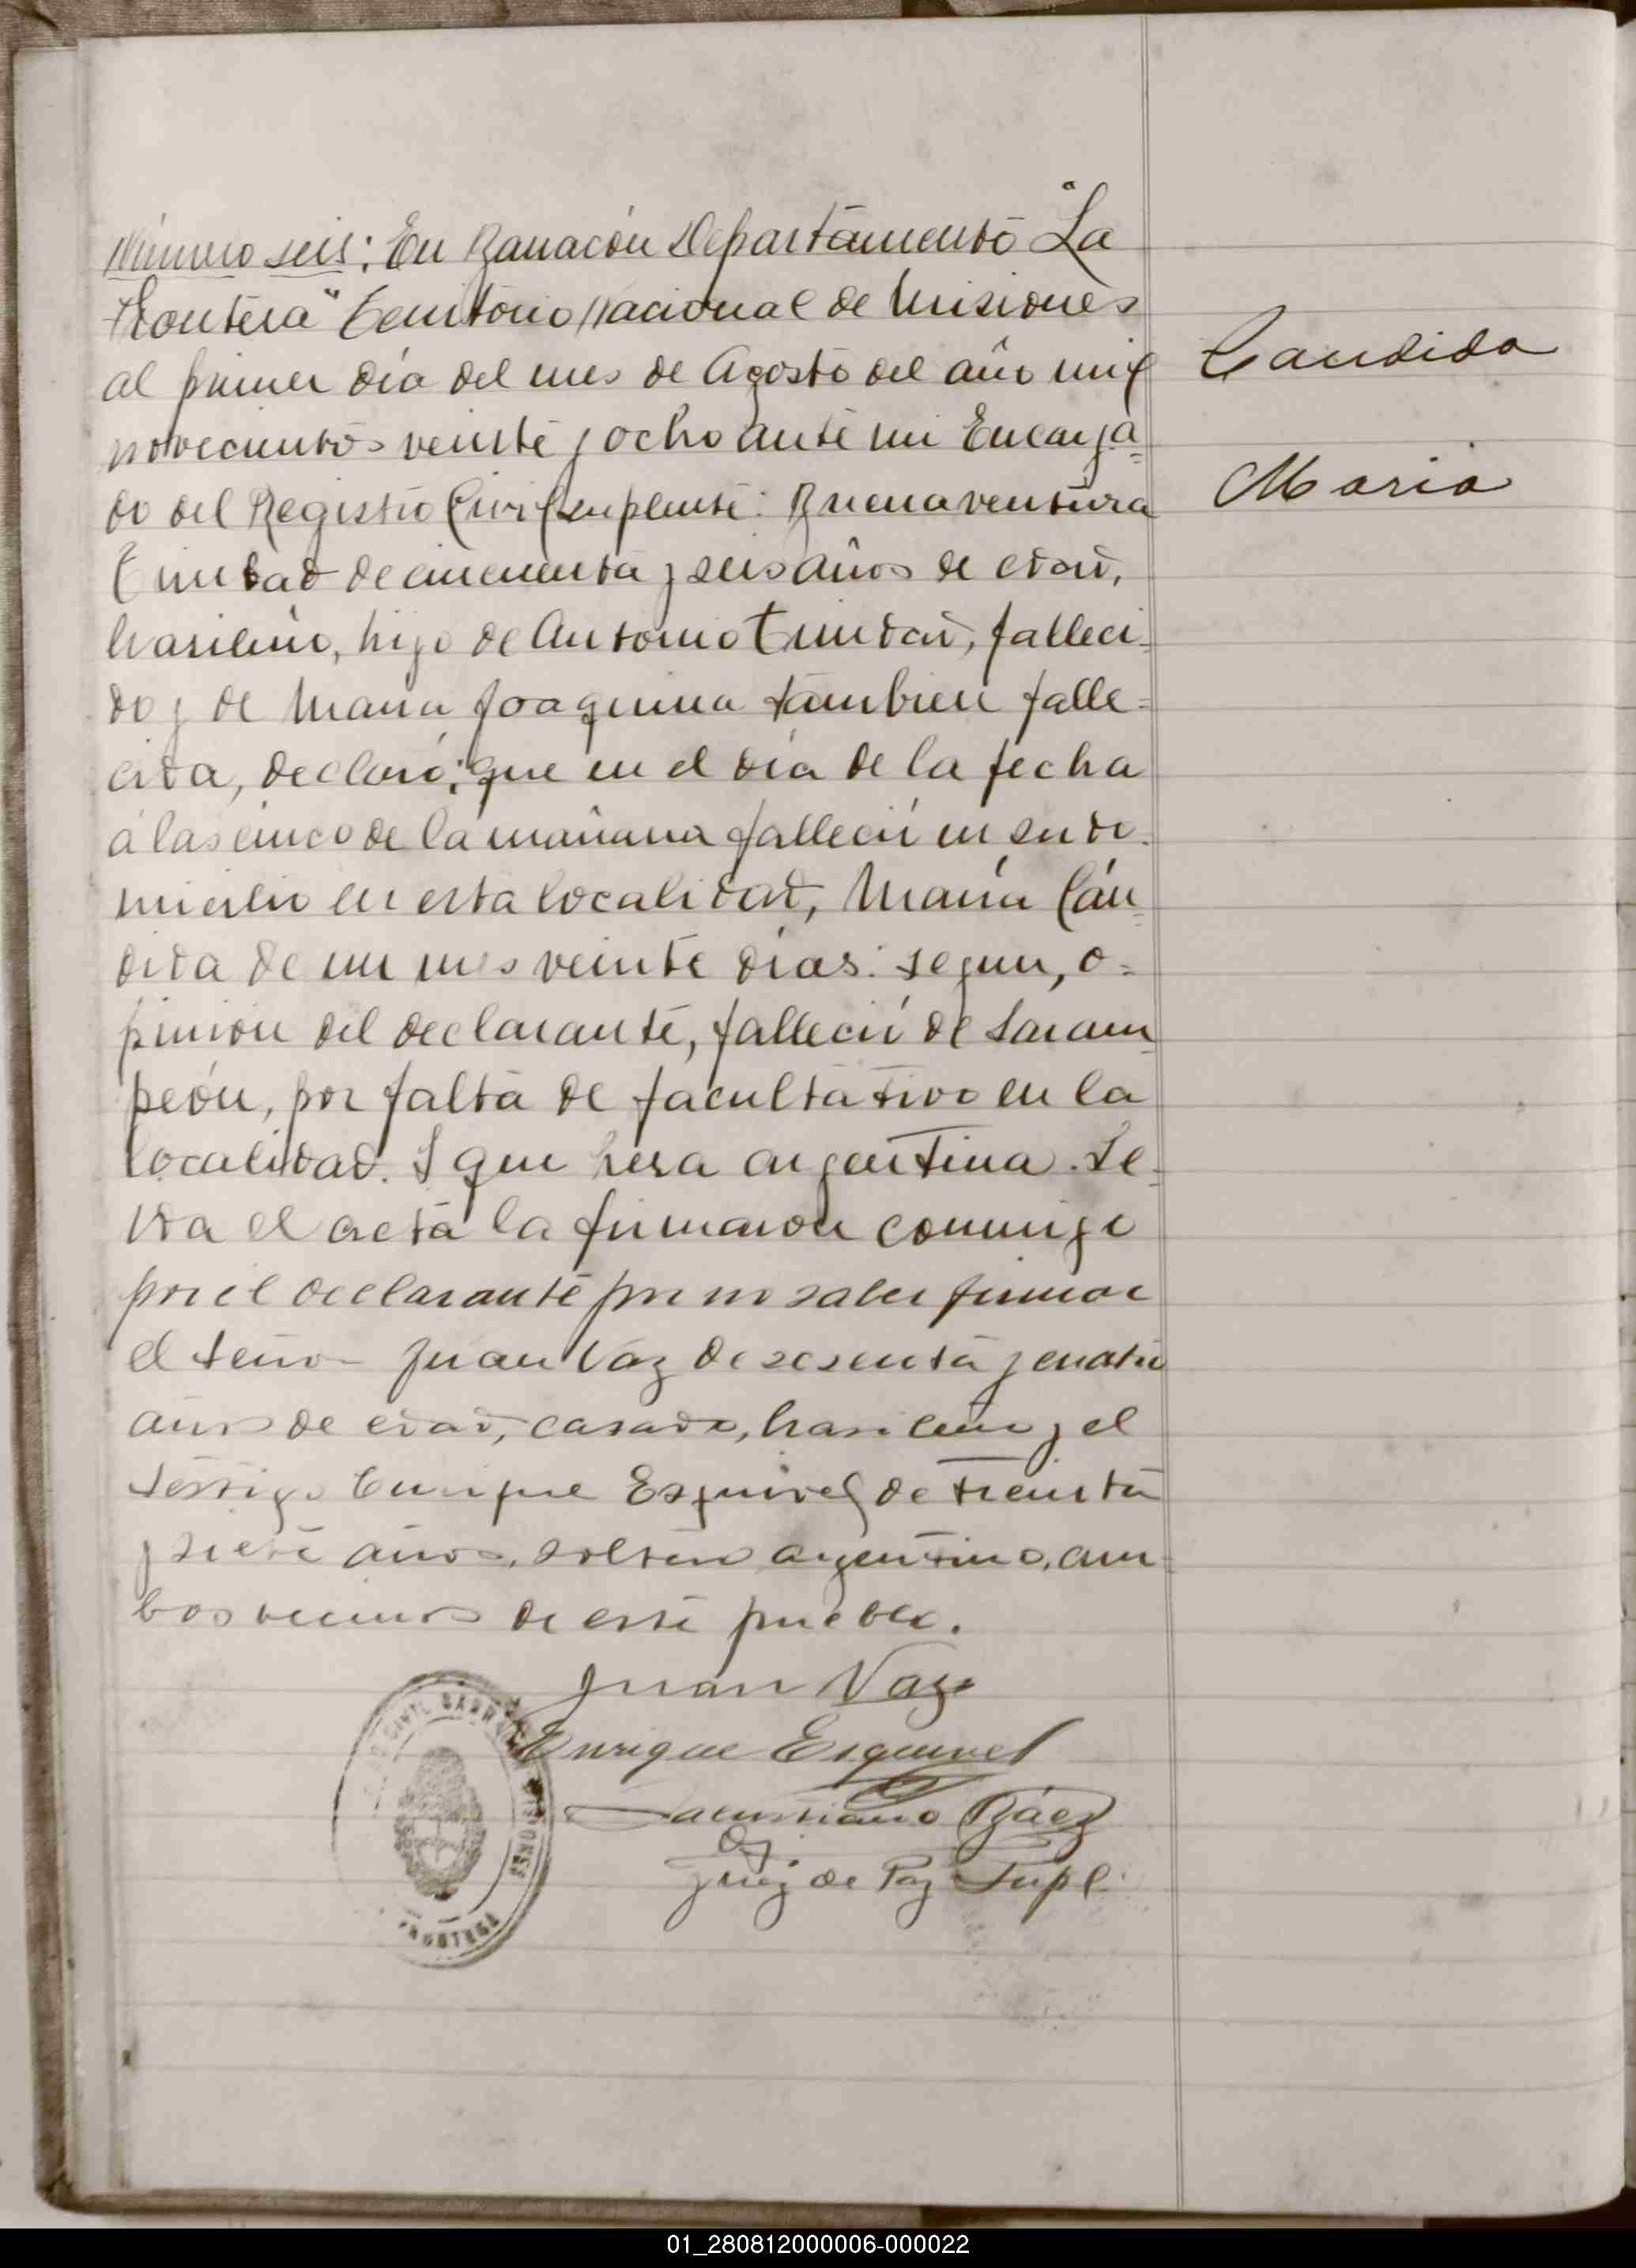 Número seis: En Barracón Departamento "La
Frontera" Territorio Nacional de Misiones
al primer día del mes de Agosto del año mil
novecientos veinte y ocho ante mi Encarga=
do del Registro Civil suplente: Buenaventura
Trinidad de cincuenta y seis años de edad,
brasilero, hijo de Antonio Trindad, falleci=
do y de Maria Joaquina tambien falle=
cida, declaró; que en el día de la fecha
á las cinco de la mañana falleció en su do=
micilio en esta localidad, María Cán=
dida de un mes veinte días: segun, o=
pinión del declarante, falleció de Saram
peón, por falta de facultativo en la
localidad. I que hera argentina. Le=
ida el acta la firmaron conmigo
por el declarante por no saber firmar
el señor Juan Vaz de sesenta y cuatro
años de edad, casado, brasilero y el
testigo Enrique Esquivel de treinta
y siete años, soltero argentino, am=
bos vecinos de este pueblo.
Juan Vaz
Enrique Esquivel
Salustiano Báez
Juez de Paz Supl.
Candida
Maria
CIVIL BARRACON MISIONES
FRONTERA
01_280812000006-000022